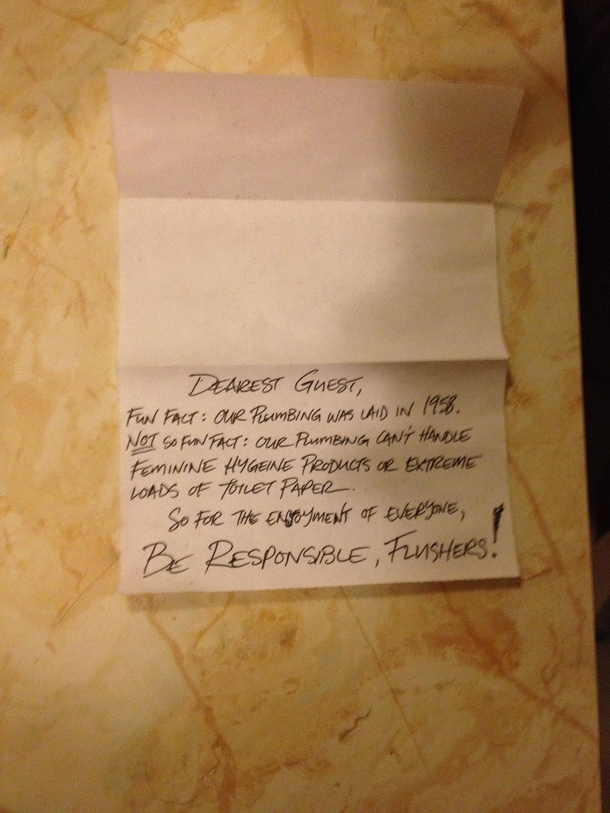 DEAREST GUEST,
FUN FACT: OUR PLUMBING WAS LAID IN 1958.
NOT SO FUN FACT: OUR PLUMBING CAN'T HANDLE
FEMININE HYGEINE PRODUCTS OR EXTREME
LOADS OF TOILET PAPER.
SO FOR THE ENJOYMENT OF EVERYONE,
BE RESPONSIBLE, FLUSHERS!